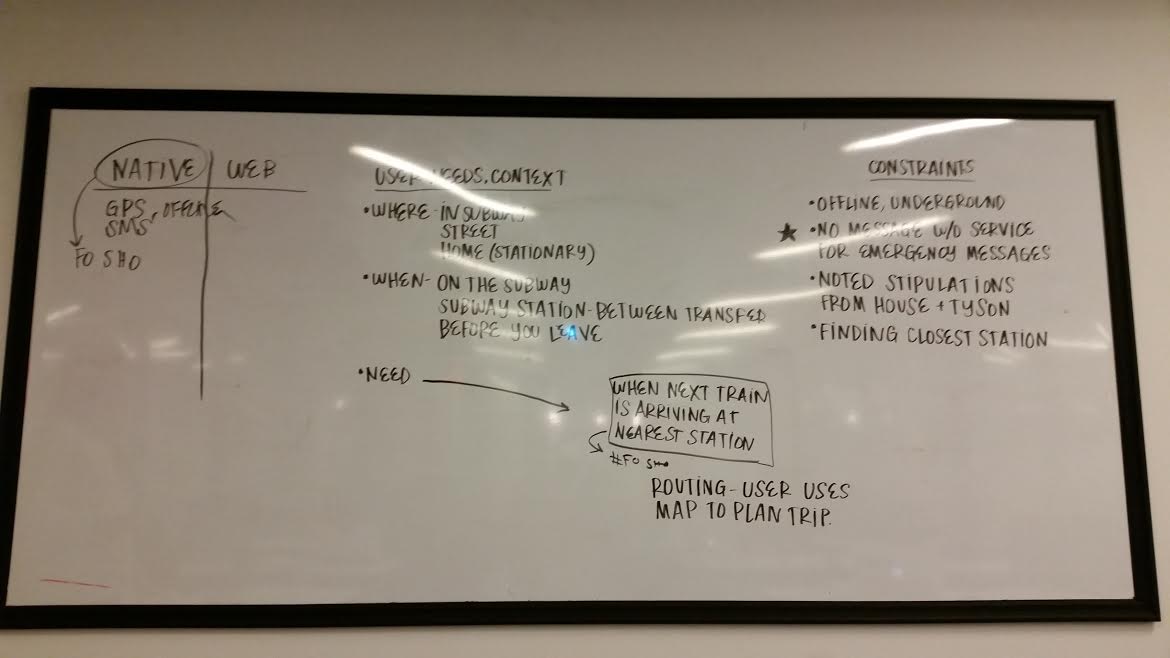 NATIVE WEB
GPS, OFFLINE
SMS
FO SHO
USER NEEDS, CONTEXT
•WHERE-IN SUBWAY
STREET
HOME (STATIONARY)
•WHEN-ON THE SUBWAY
SUBWAY STATION-BETWEEN TRANSFER
BEFORE YOU LEAVE
•NEED
WHEN NEXT TRAIN
IS ARRIVING AT
NEAREST STATION
#FO SHO
ROUTING-USER USES
MAP TO PLAN TRIP.
CONSTRAINTS
•OFFLINE, UNDERGROUND
★ •NO MESSAGE W/O SERVICE
FOR EMERGENCY MESSAGES
•NOTED STIPULATIONS
FROM HOUSE + TYSON
•FINDING CLOSEST STATION